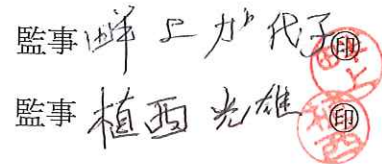 監事 畔上 加代子 ㊞
監事 植西 光雄 ㊞